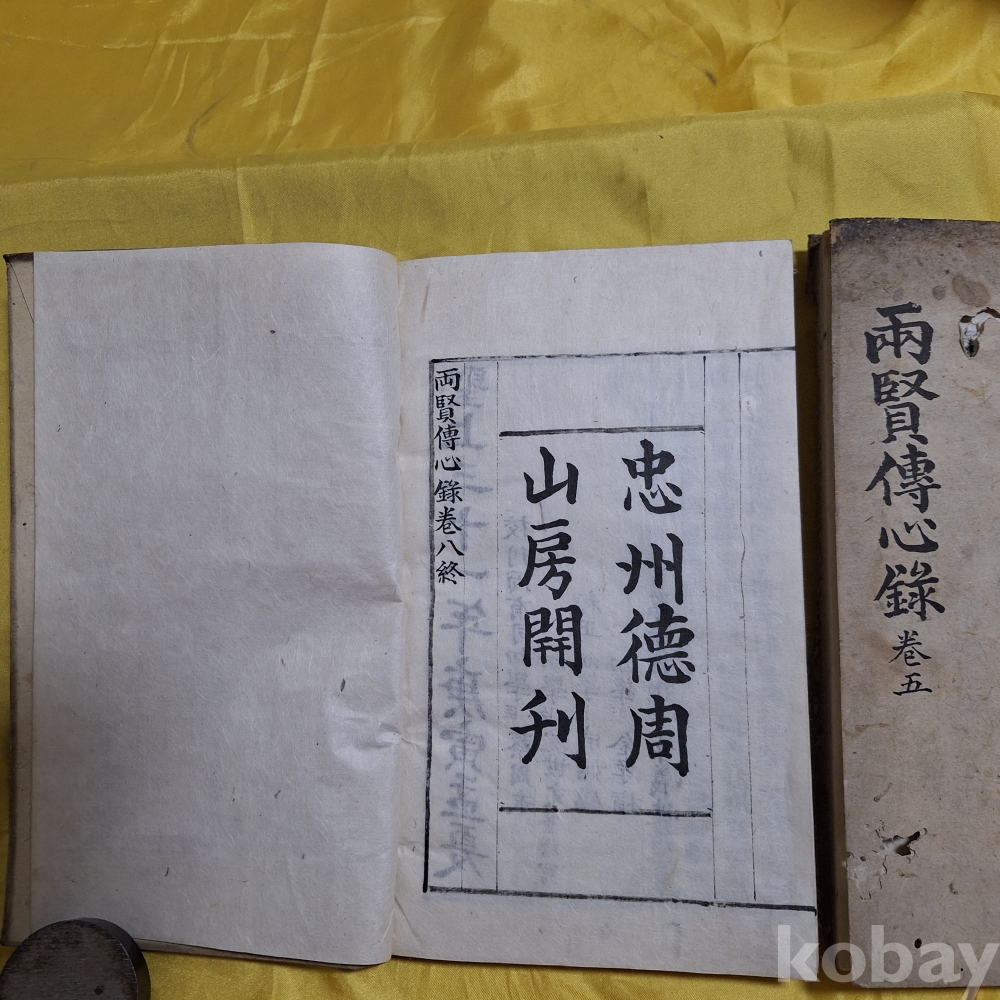 兩賢傳心錄
卷五
忠州德周
山房開刋
両賢傳心錄卷八終
kobay